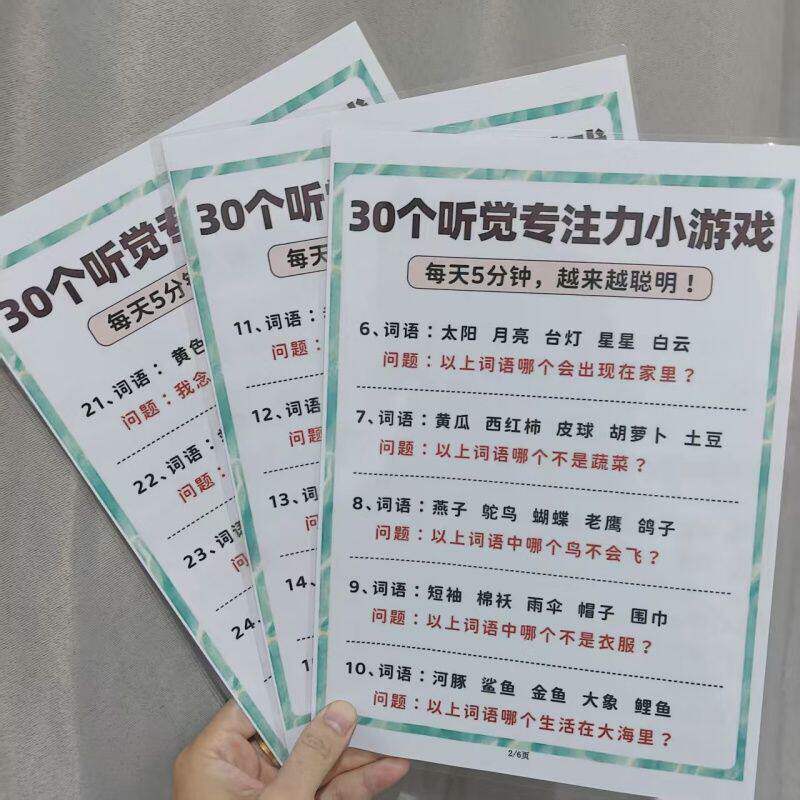 30个听觉专注力小游戏
每天5分钟，越来越聪明！
6、词语：太阳 月亮 台灯 星星 白云
问题：以上词语哪个会出现在家里？
7、词语：黄瓜 西红柿 皮球 胡萝卜 土豆
问题：以上词语哪个不是蔬菜？
8、词语：燕子 鸵鸟 蝴蝶 老鹰 鸽子
问题：以上词语中哪个鸟不会飞？
9、词语：短袖 棉袄 雨伞 帽子 围巾
问题：以上词语中哪个不是衣服？
10、词语：河豚 鲨鱼 金鱼 大象 鲤鱼
问题：以上词语哪个生活在大海里？
2/6页
30个听
每天
11、词语：
问题：
12、词语
问题
13、词
问
14、
30个听觉
每天5分钟
21、词语： 黄色
问题：我念
22、词语：
问题：
23、词语
问题
24、